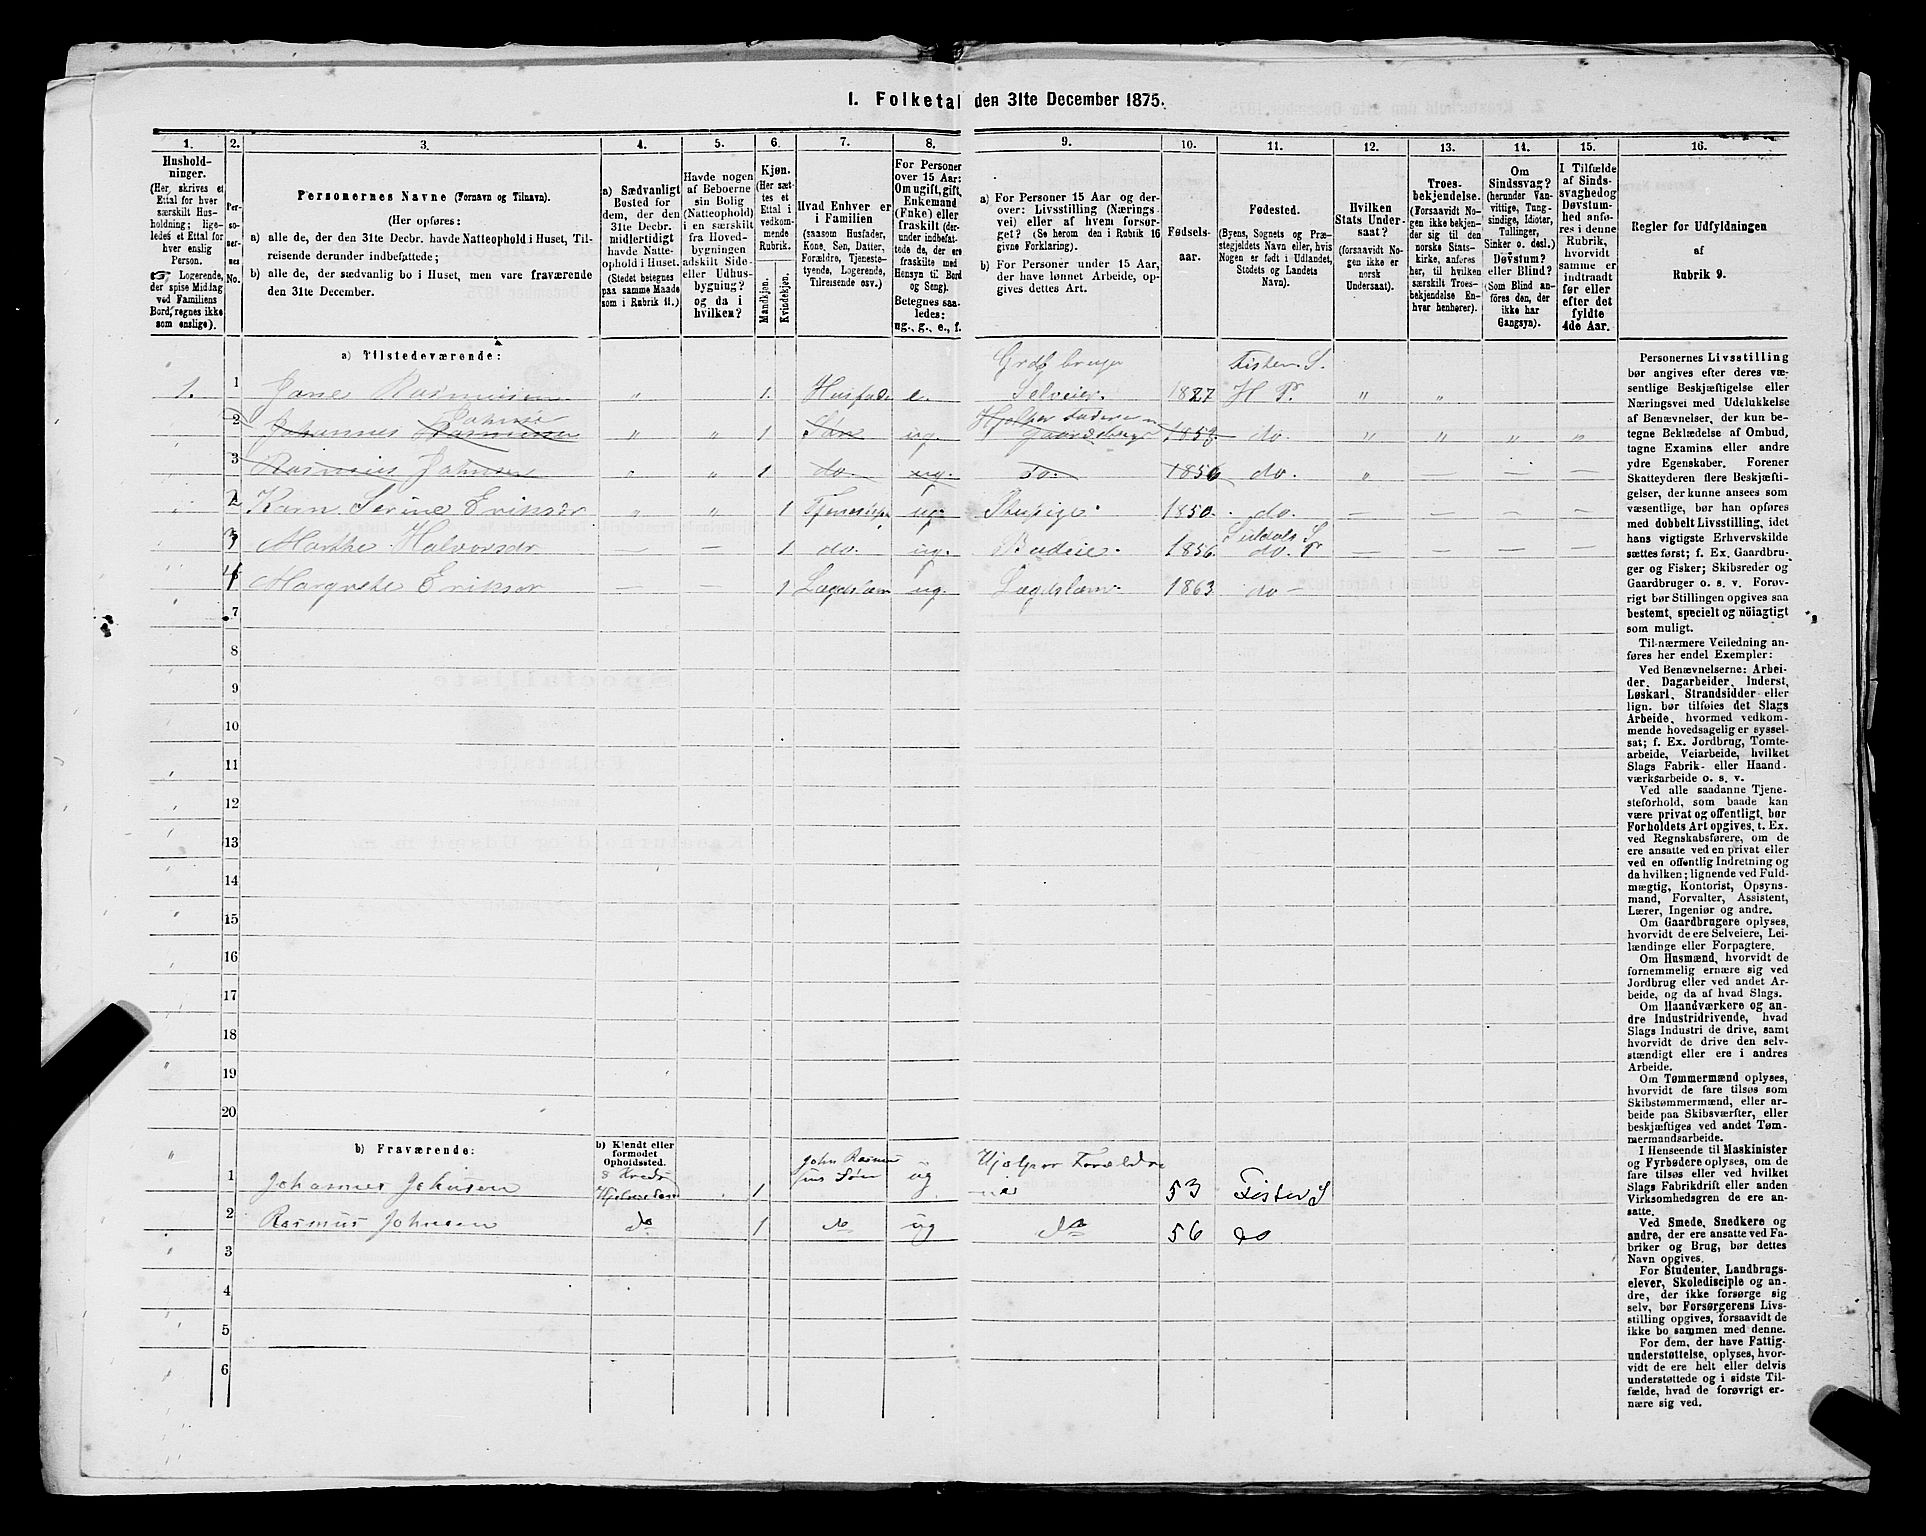 1. Folketal den 31te December 1875.
1. 2. 3. 4. 5. 6. 7. 8. 9. 10. 11. 12. 13. 14. 15. 16.
Hushold-
ninger.
(Her skrives et
Ettal for hver
særskilt Hus-
holdning; lige-
ledes et Ettal for
hver enslig
Person.
☞ Logerende,
der spise Middag
ved Familiens
Bord, regnes ikke
som enslige).
Per-
so-
ner-
nes
No.
Personernes Navne (Fornavn og Tilnavn).
(Her opføres:
a) alle de, der den 31te Decbr. havde Natteophold i Huset, Til-
reisende derunder indbefattede;
b) alle de, der sædvanlig bo i Huset, men vare fraværende
den 31te December.
a) Sædvanligt
Bosted for
dem, der den
31te Decbr.
midlertidigt
havde Natte-
ophold i Huset.
(Stedet betegnes
paa samme Maade
som i Rubrik 11.)
Havde nogen
af Beboerne
sin Bolig
(Natteophold)
i en særskilt
fra Hoved-
bygningen
adskilt Side-
eller Udhus-
bygning?
og da i
hvilken?
Kjøn.
(Her sæt-
tes et
Ettal i
vedkom-
mende
Rubrik.
Mandkjøn.
Kvindekjøn.
Hvad Enhver er
i Familien
(saasom Husfader,
Kone, Søn, Datter,
Forældre, Tjeneste-
tyende, Logerende,
Tilreisende osv.)
For Personer
over 15 Aar:
Om ugift, gift,
Enkemand
(Enke) eller
fraskilt (der-
under indbefat-
tede de, der ere
fraskilte med
Hensyn til Bord
og Seng).
Betegnes saa-
ledes:
ug., g., e., f.
a) For Personer 15 Aar og der-
over: Livsstilling (Nærings-
vei) eller af hvem forsør-
get? (Se herom den i Rubrik 16
givne Forklaring).
b) For Personer under 15 Aar,
der have lønnet Arbeide, op-
gives dettes Art.
Fødsels-
aar.
Fødested.
(Byens, Sognets og Præ-
stegjeldets Navn eller, hvis
Nogen er født i Udlandet,
Stedets og Landets
Navn).
Hvilken
Stats Under-
saat?
(forsaavidt No-
gen ikke er
norsk
Undersaat).
Troes-
bekjendelse.
(Forsaavidt No-
gen ikke bekjen-
der sig til den
norske Stats-
kirke, anføres
her, til hvilken
særskilt Troes-
bekjendelse En-
hver henhører).
Om
Sindssvag?
(herunder Van-
vittige, Tung-
sindige, Idioter,
Tullinger,
Sinker o. desl.)
Døvstum?
eller Blind?
(Som Blind an-
føres den, der
ikke har
Gangsyn).
I Tilfælde
af Sinds-
svaghed og
Døvstum-
hed anfø-
res i denne
Rubrik,
hvorvidt
samme er
indtraadt
før eller
efter det
fyldte
4de Aar.
Regler for Udfyldningen
af
Rubrik 9.
a) Tilstedeværende:
1. 1 Jone Rasmussen " 1. Husfad. e. Grdbruger Selveier. 1827 Fister S. H P. " "
2 Johannes Rasmussen Johns " " 1 Søn ug. Hjelper Faderen m Gaardsbrug 1853 do. " " " "
3 Rasmus Johnsen " " 1 do. ug. do. 1856 do. " — — —
2 Karn Serine Eriksdr " " 1 ug. 1850. do. — — — —
3 Marthe Halvorsdr — — 1 do. ug. Budeie. 1856 Suldals S do. P — — — —
4 Margrethe Eriksdr — — 1 Lægdslem ug. Lægdslem. 1863 do — — — — —
7
8
9
10
11
12
13
14
15
16
17
18
19
20
b) Fraværende:
b) Kjendt eller
formodet
Opholdssted.
1 Johannes Johnsen 1 John Rasmussens Søn ug Hjelper Forældrene 53 Fister S
2 Rasmus Johnsen do 1 do ug do 56 do
3
4
5
6
Personernes Livsstilling
bør angives efter deres væ-
sentlige Beskjæftigelse eller
Næringsvei med Udelukkelse
af Benævnelser, der kun be-
tegne Beklædelse af Ombud,
tagne Examina eller andre
ydre Egenskaber. Forener
Skatteyderen flere Beskjæfti-
gelser, der kunne ansees som
væsentlige, bør han opføres
med dobbelt Livsstilling, idet
hans vigtigste Erhvervskilde
sættes først; f. Ex. Gaardbru-
ger og Fisker; Skibsreder og
Gaardbruger o. s. v. Forøv-
rigt bør Stillingen opgives saa
bestemt, specielt og nöiagtigt
som muligt.
Til nærmere Veiledning an-
føres her endel Exempler:
Ved Benævnelserne: Arbei-
der, Dagarbeider, Inderst,
Løskarl, Strandsidder eller
lign. bør tilføies det Slags
Arbeide, hvormed vedkom-
mende hovedsagelig er syssel-
sat; f. Ex. Jordbrug, Tomte-
arbeide, Veiarbeide, hvilket
Slags Fabrik- eller Haand-
værksarbeide o. s. v.
Ved alle saadanne Tjene-
steforhold, som baade kan
være privat og offentligt, bør
Forholdets Art opgives, t. Ex.
ved Regnskabsførere, om de
ere ansatte ved en privat eller
ved en offentlig Indretning og
da hvilken; lignende ved Fuld-
mægtig, Kontorist, Opsyns-
mand, Forvalter, Assistent,
Lærer, Ingeniør og andre.
Om Gaardbrugere oplyses,
hvorvidt de ere Selveiere, Lei-
lændinge eller Forpagtere.
Om Husmænd, hvorvidt de
fornemmelig ernære sig ved
Jordbrug eller ved andet Ar-
beide, og da af hvad Slags.
Om Haandværkere og an-
dre Industridrivende, hvad
Slags Industri de drive, samt
hvorvidt de drive den selv-
stændigt eller ere i andres
Arbeide.
Om Tømmermænd oplyses,
hvorvidt de fare tilsøs som
Skibstømmermænd, eller ar-
beide paa Skibsværfter, eller
beskjæftiges ved andet Tøm-
mermandsarbeide.
I Henseende til Maskinister
og Fyrbødere oplyses, om de
fare tilsøs eller ved hvilket
Slags Fabrikdrift eller anden
Virksomhedsgren de ere an-
satte.
Ved Smede, Snedkere og
andre, der ere ansatte ved Fa-
briker og Brug, bør dettes
Navn opgives.
For Studenter, Landbrugs-
elever, Skoledisciple og an-
dre, der ikke forsørge sig
selv, bør Forsørgerens Livs-
stilling opgives, forsaavidt de
ikke bo sammen med denne.
For dem, der have Fattig-
understøttelse, oplyses, hvor-
vidt de ere helt eller delvis
understøttede og i sidste Til-
fælde, hvad de forøvrigt er-
nære sig ved.